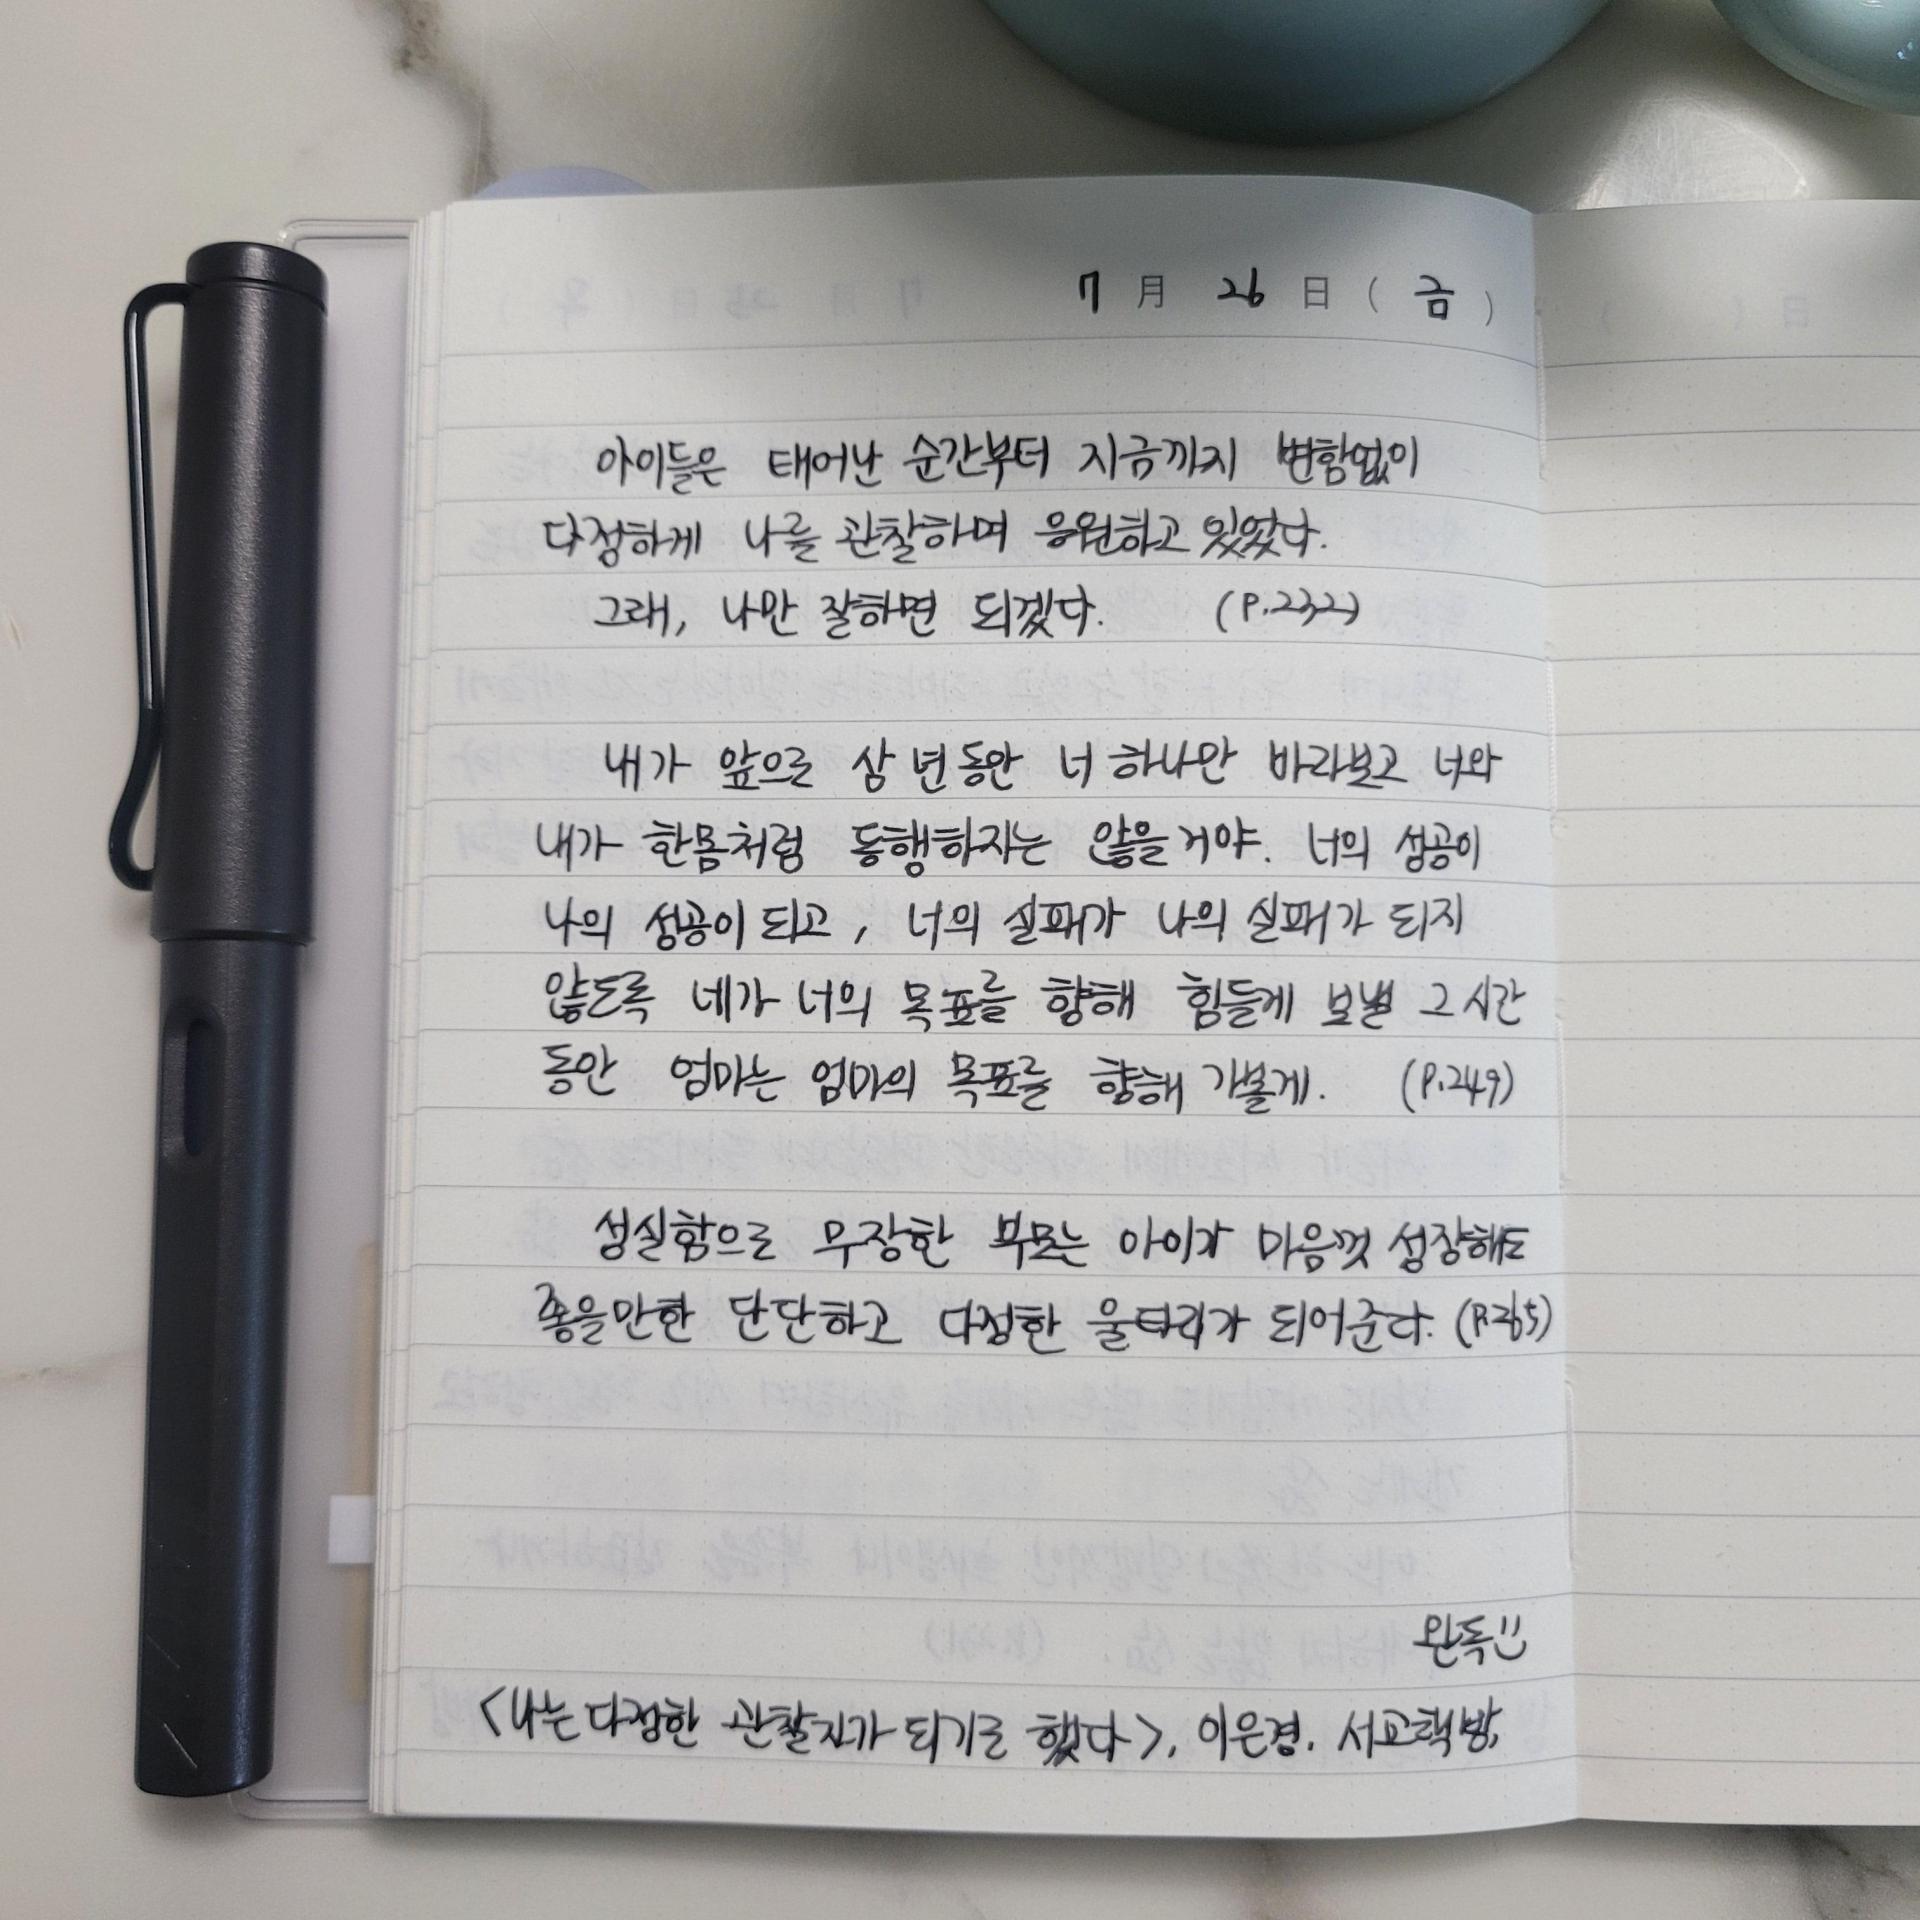 7 月 26 日 ( 금 )
아이들은 태어난 순간부터 지금까지 변함없이
다정하게 나를 관찰하며 응원하고 있었다.
그래, 나만 잘하면 되겠다. (P.232)
내가 앞으로 삼 년 동안 너 하나만 바라보고 너와
내가 한몸처럼 동행하자는 않을 거야. 너의 성공이
나의 성공이 되고, 너의 실패가 나의 실패가 되지
않도록 네가 너의 목표를 향해 힘들게 보낼 그 시간
동안 엄마는 엄마의 목표를 향해 가볼게. (P.249)
성실함으로 무장한 부모는 아이가 마음껏 성장해도
좋을만한 단단하고 다정한 울타리가 되어준다. (P.265)
완독!!
<나는 다정한 관찰자가 되기로 했다>, 이은경. 서교책방.